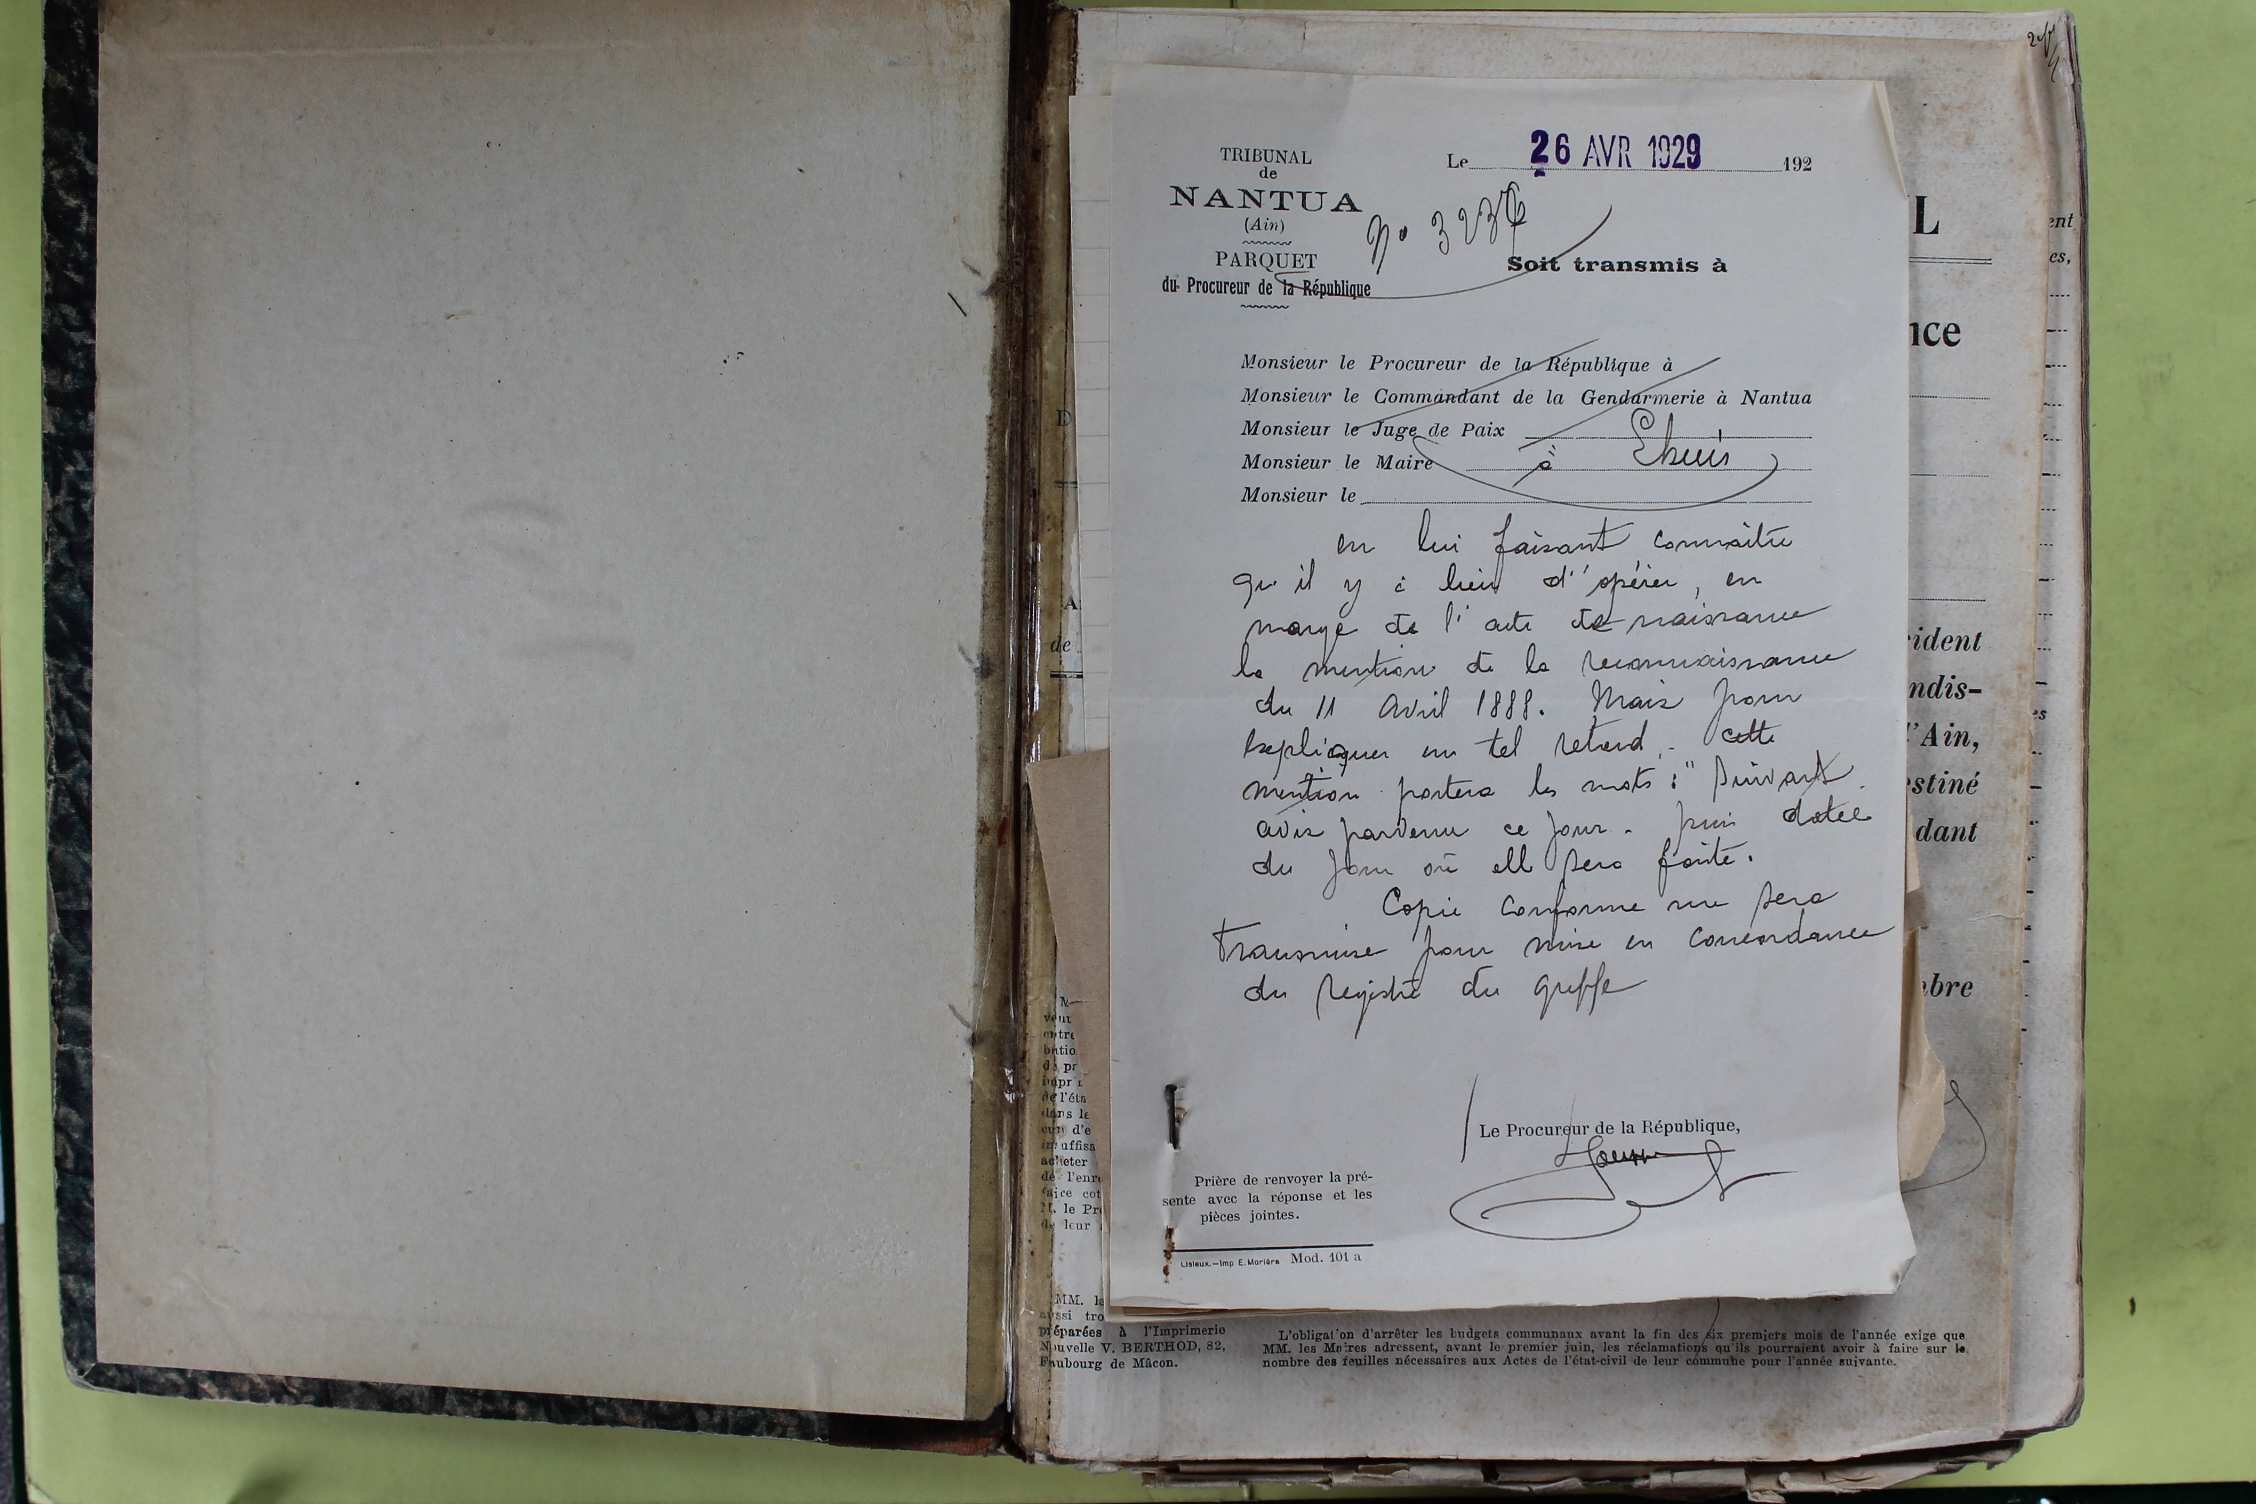 TRIBUNAL
de
NANTUA
(Ain)
PARQUET
du Procureur de la République
Le 26 AVR 1929 192
No
Soit transmis à
Monsieur le Procureur de la République à
Monsieur le Commandant de la Gendarmerie à Nantua
Monsieur le Juge de Paix
Monsieur le Maire à
Monsieur le
en lui faisant connaître
qu'il y a lieu d'opérer, en
marge de l'acte de naissance
la mention de la reconnaissance
du 11 Avril 1888. Mais pour
expliquer un tel retard, cette
mention portera les mots : " Suivant
avis parvenu ce jour. puis datée
du jour où elle sera faite.
Copie conforme me sera
transmise pour mise en concordance
du registre du greffe
Le Procureur de la République,
Prière de renvoyer la pré-
sente avec la réponse et les
pièces jointes.
Lisieux.—Imp E. Morière Mod. 101 a
L
nce
ident
ndis-
l'Ain,
estiné
dant
mbre
ent
es,
de
MM. le
aussi tro
préparées à l'Imprimerie
Nouvelle V. BERTHOD, 82,
Faubourg de Mâcon.
L'obligation d'arrêter les budgets communaux avant la fin des six premiers mois de l'année exige que
MM. les Maires adressent, avant le premier juin, les réclamations qu'ils pourraient avoir à faire sur le
nombre des feuilles nécessaires aux Actes de l'état-civil de leur commune pour l'année suivante.